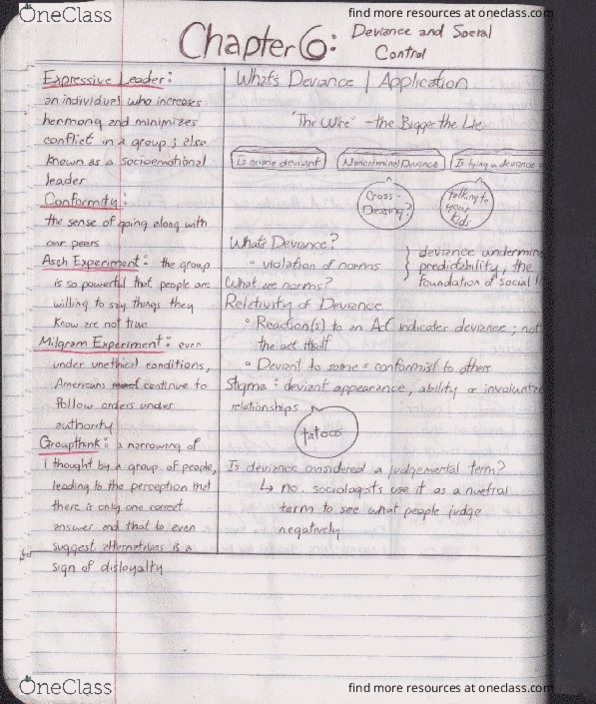 OneClass
find more resources at oneclass.com
Chapter 6: Deviance and Social
Control
Expressive Leader:
an individual who increases
hermony and minimizes
conflict in a group; also
known as a socioemotional
leader
Conformity:
the sense of going along with
our peers
Asch Experiment: the group
is so powerful that people are
willing to say things they
know are not true
Milgram Experiment: even
under unethical conditions,
Americans continue to
follow orders under
authority
Groupthink: a narrowing of
thought by a group of people,
leading to the perception that
there is only one correct
answer and that to even
suggest alternatives is a
sign of disloyalty
What's Deviance | Application
"The Wire" - the Bigger the Lie
Is crime deviant
Noncriminal Deviance
Is lying a deviance
Cross-
Dressing?
talking to
your
kids
What's Deviance?
• violation of norms
What are norms?
} deviance undermin
predictability, the
foundation of social
Relativity of Deviance
• Reaction(s) to an Act indicates deviance; not
the act itself
• Deviant to some = conformist to others
Stigma: deviant appearance, ability or involunt
relationships
tatoos
Is deviance considered a judgemental term?
↳ no. sociologists use it as a nuetral
term to see what people judge
negatively
OneClass
find more resources at oneclass.com